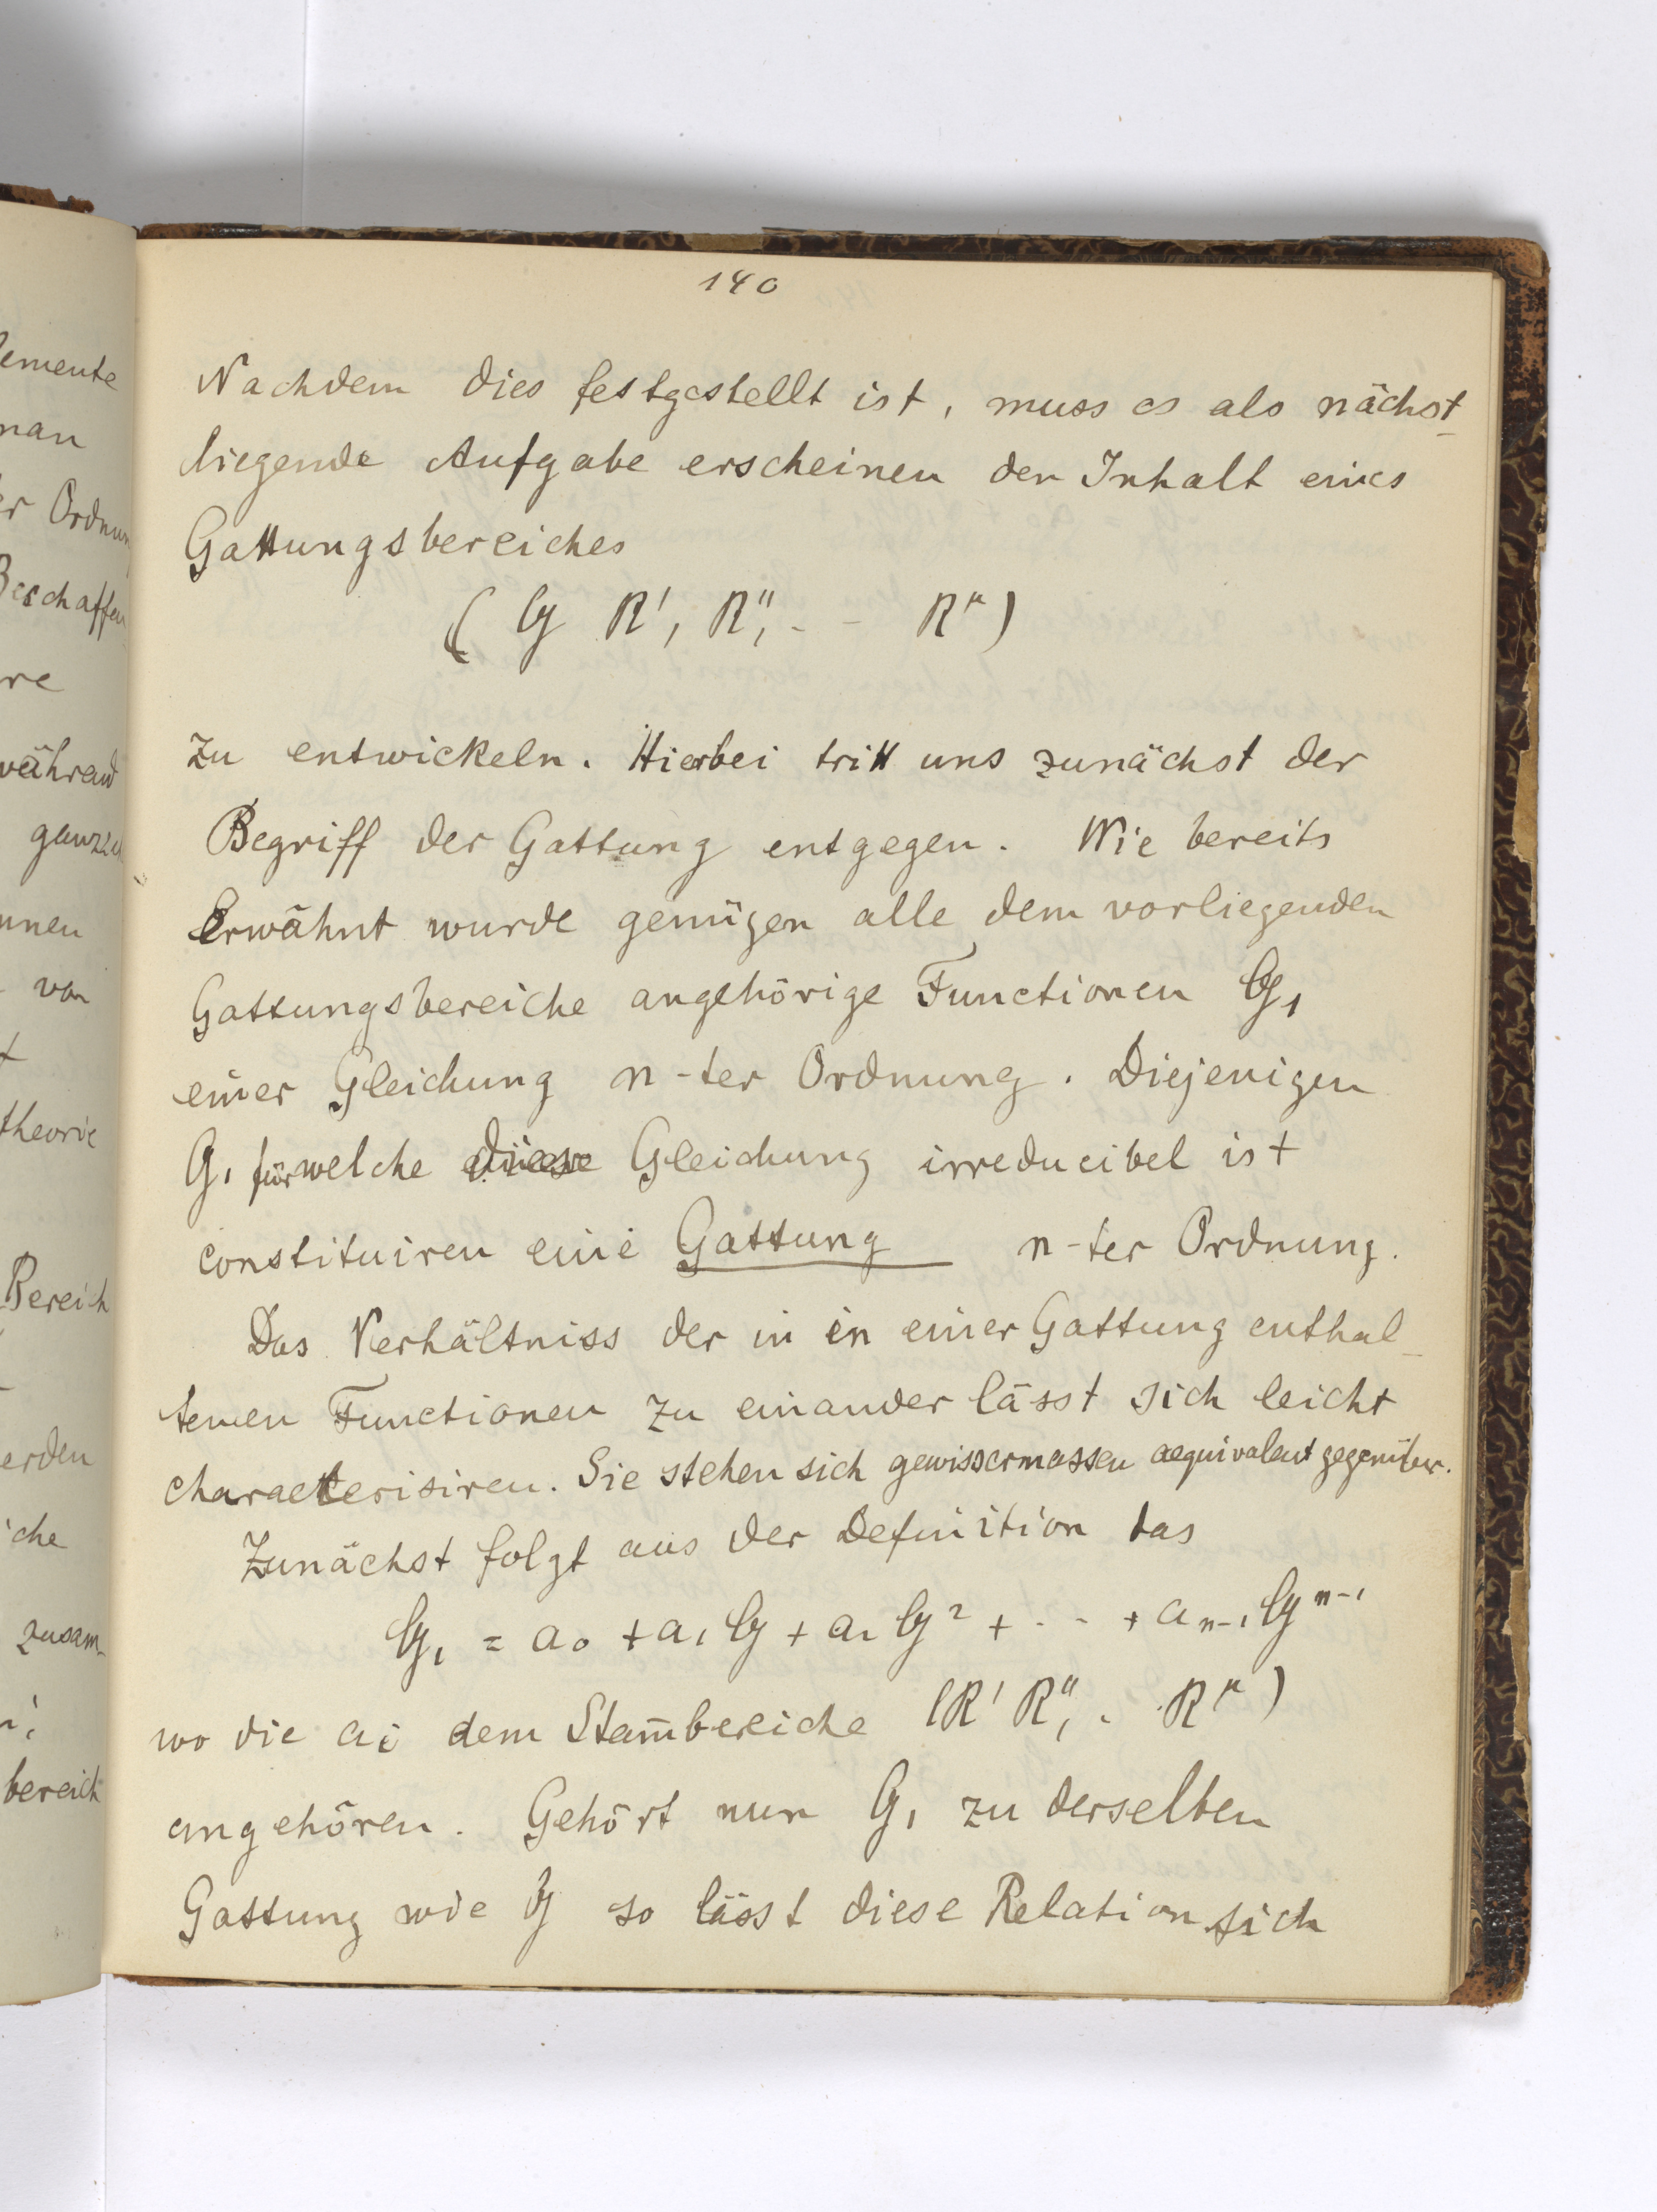 140
Nachdem dies festgestellt ist, muss es als nächst-
liegende Aufgabe erscheinen den Inhalt eines
Gattungsbereiches
( G R', R'', - - Rⁿ )
zu entwickeln. Hierbei tritt uns zunächst der
Begriff der Gattung entgegen. Wie bereits
Erwähnt wurde genügen alle dem vorliegenden
Gattungsbereiche angehörige Functionen G₁
einer Gleichung n-ter Ordnung. Diejenigen
G₁ für welche diese Gleichung irreducibel ist
constituiren eine Gattung n-ter Ordnung.
Das Verhältniss der in in einer Gattung enthal-
tenen Functionen zu einander lässt sich leicht
characterisiren. Sie stehen sich gewissermassen aequivalent gegenüber.
Zunächst folgt aus der Definition das
G₁ = a₀ + a₁ G + a₂ G² + . - + aₙ₋₁ Gⁿ⁻¹
wo die ai dem Stam̅bereiche (R' R'', . . Rⁿ)
angehören. Gehört nun G₁ zu derselben
Gattung wie G so lässt diese Relation sich
lemente
man
er Ordnun
Beschaffen
re
während
ganzza
nnen
von
t
theorie
Bereich
erden
iche
zusam-
bereich